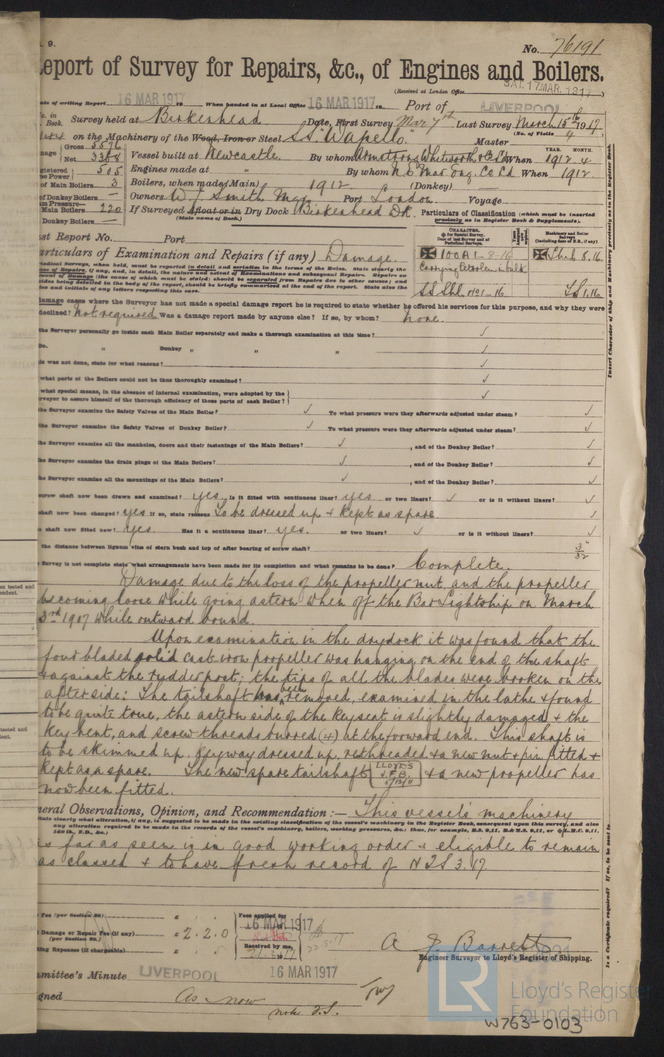 . 9.
No. 76191
eport of Survey for Repairs, &c., of Engines and Boilers.
(Received at London Office SAT. 17 MAR. 1917
ate of writing Report 16 MAR 1917 When handed in at Local Office 16 MAR 1917 Port of LIVERPOOL
Survey held at Birkenhead Date, First Survey Mar 7th Last Survey March 15th 1917
(No. of Visits 4
on the Machinery of the Wood, Iron or Steel S.S. "Wapello" Master
Gross 5576
Net 3368
Vessel built at Newcastle By whom Armstrong Whitworth & Co Ld When 1912-4
505
Engines made at By whom N.E. Mar. Eng. Co Ld When 1912
of Main Boilers 3
Boilers, when made (Main) 1912 (Donkey) —
of Donkey Boilers —
Owners W. J. Smith Mgr Port London Voyage
Main Boilers 220
If Surveyed Afloat or in Dry Dock Birkenhead Dk.
(State name of Dock.)
Donkey Boilers —
Particulars of Classification (which must be inserted precisely as in Register Book & Supplements.
st Report No. Port
articulars of Examination and Repairs (if any) Damage.
100A1 - 8.16
Carrying Petroleum in bulk
8.16
LS 1.16
damage cases where the Surveyor has not made a special damage report he is to state whether he offered his services for this purpose, and why they were
declined? Not required Was a damage report made by anyone else? If so, by whom? none.
the Surveyor personally go inside each Main Boiler separately and make a thorough examination at this time? ✓
Do. " Donkey " " " ✓
is was not done, state for what reasons? ✓
what parts of the Boilers could not be thoroughly examined? ✓
what special means, in the absence of internal examination, were adopted by the
rveyor to assure himself of the thorough efficiency of those parts of each Boiler? ✓
the Surveyor examine the Safety Valves of the Main Boiler? ✓ To what pressure were they afterwards adjusted under steam? ✓
the Surveyor examine the Safety Valves of Donkey Boiler? ✓ To what pressure were they afterwards adjusted under steam? ✓
the Surveyor examine all the manholes, doors and their fastenings of the Main Boilers? ✓ , and of the Donkey Boiler? ✓
the Surveyor examine the drain plugs of the Main Boilers? ✓ , and of the Donkey Boiler? ✓
the Surveyor examine all the mountings of the Main Boilers? ✓ , and of the Donkey Boiler? ✓
screw shaft now been drawn and examined? Yes Is it fitted with continuous liner? Yes or two liners? ✓ or is it without liners? ✓
shaft now been changed? Yes If so, state reasons To be dressed up & kept as spare.
shaft now fitted new? Yes. Has it a continuous liner? Yes. or two liners? ✓ or is it without liners? ✓
the distance between lignum vitæ of stern bush and top of after bearing of screw shaft? 3/32
Survey is not complete state what arrangements have been made for its completion and what remains to be done? Complete.
Damage due to the loss of the propeller nut, and the propeller
becoming loose while going astern when off the Bar Lightship on March
3rd 1917 while outward bound.
Upon examination in the drydock it was found that the
four bladed solid cast iron propeller was hanging on the end of the shaft
& against the rudder post; the tips of all the blades were broken on the
after side; The tailshaft has been removed, examined in the lathe & found
to be quite true, the astern side of the keyseat is slightly damaged & the
key bent, and screw threads burred (4) at the forward end. This shaft is
to be skimmed up. Keyway dressed up, rethreaded & a new nut & pin fitted &
kept as a spare. The new spare tailshaft LLOYD'S & a new propeller has
now been fitted.
neral Observations, Opinion, and Recommendation :— This vessel's machinery
is far as seen is in good working order & eligible to remain
as classed & to have fresh record of N.T.S 3.17
Fee (per Section 29.)
Damage or Repair Fee (if any) £ 2.2.0
(per Section 29.)
elling Expenses (if chargeable)
Fees applied for
16 MAR 1917
Received by me,
A J Barrett
Engineer Surveyor to Lloyd's Register of Shipping.
mmittee's Minute LIVERPOOL 16 MAR 1917
gned As now
note T.S.
LR
Lloyd's Register
Foundation
W763-0103